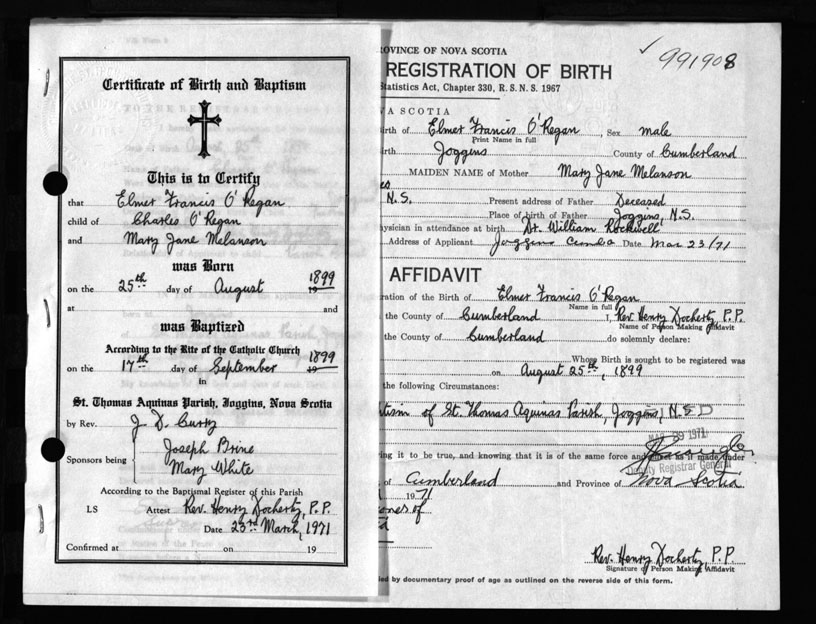 Certificate of Birth and Baptism
This is to Certify
that Elmer Francis O'Regan
child of Charles O'Regan
and Mary Jane Melanson
was Born
on the 25th day of August 1899 19
at and
was Baptized
According to the Rite of the Catholic Church
on the 17th day of September 1899 19
in
St. Thomas Aquinas Parish, Joggins, Nova Scotia
by Rev. J. D. Curry
Sponsors being Joseph Brine
Mary White
According to the Baptismal Register of this Parish
LS Attest Rev. Henry Docherty, P.P.
Date 23rd March, 1971
Confirmed at on 19
991908
ROVINCE OF NOVA SCOTIA
REGISTRATION OF BIRTH
Statistics Act, Chapter 330, R.S.N.S. 1967
VA SCOTIA
irth of Elmer Francis O'Regan, Sex male
Print Name in full
irth Joggins County of Cumberland
MAIDEN NAME of Mother Mary Jane Melanson
N.S. Present address of Father Deceased
Place of birth of Father Joggins, N.S.
ysician in attendance at birth Dr. William Rockwell
Address of Applicant Joggins Cumb. Date Mar 23/71
AFFIDAVIT
ration of the Birth of Elmer Francis O'Regan
Name in full
the County of Cumberland, Rev. Henry Docherty, P.P.
Name of Person Making Affidavit
the County of Cumberland do solemnly declare:
Whose Birth is sought to be registered was
on August 25th, 1899
the following Circumstances:
tism of St. Thomas Aquinas Parish, Joggins, N.S.
1971
ing it to be true, and knowing that it is of the same force and as if made under
Deputy Registrar General
of Cumberland and Province of Nova Scotia
1971
ones of
Rev. Henry Docherty, P.P.
Signature of Person Making Affidavit
ed by documentary proof of age as outlined on the reverse side of this form.